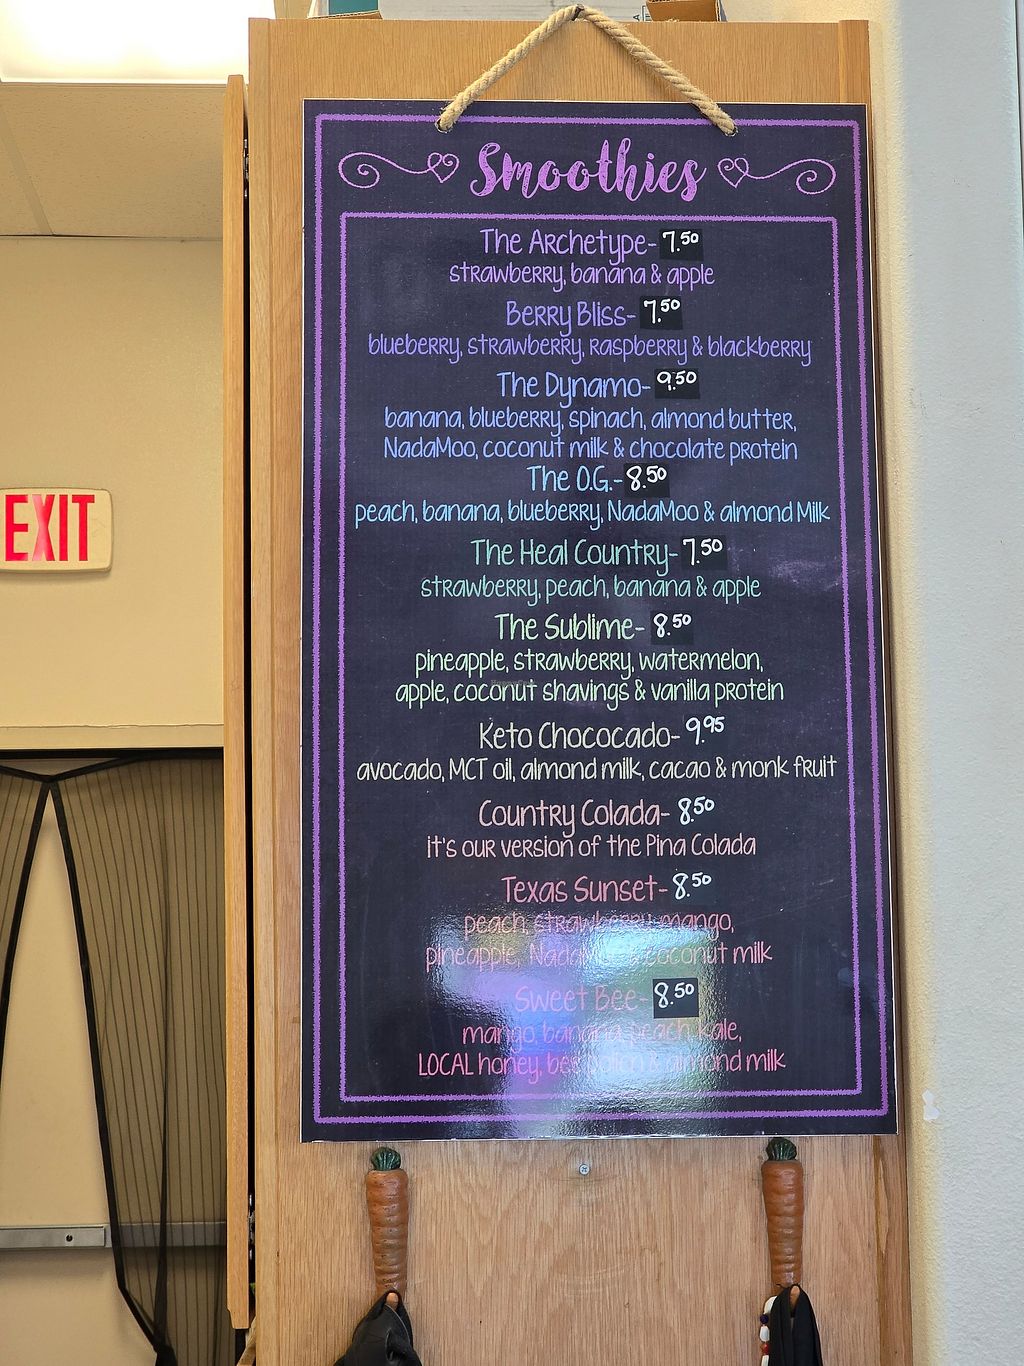 Smoothies
The Archetype- 7.50
strawberry, banana & apple
Berry Bliss- 7.50
blueberry, strawberry, raspberry & blackberry
The Dynamo- 9.50
banana, blueberry, spinach, almond butter,
NadaMoo, coconut milk & chocolate protein
The O.G.- 8.50
peach, banana, blueberry, NadaMoo & almond Milk
The Heal Country- 7.50
strawberry, peach, banana & apple
The Sublime- 8.50
pineapple, strawberry, watermelon,
apple, coconut shavings & vanilla protein
Keto Chococado- 9.95
avocado, MCT oil, almond milk, cacao & monk fruit
Country Colada- 8.50
it's our version of the Pina Colada
Texas Sunset- 8.50
peach, strawberry, mango,
pineapple, NadaMoo & coconut milk
Sweet Bee- 8.50
mango, banana, peach, kale,
LOCAL honey, bee pollen & almond milk
EXIT